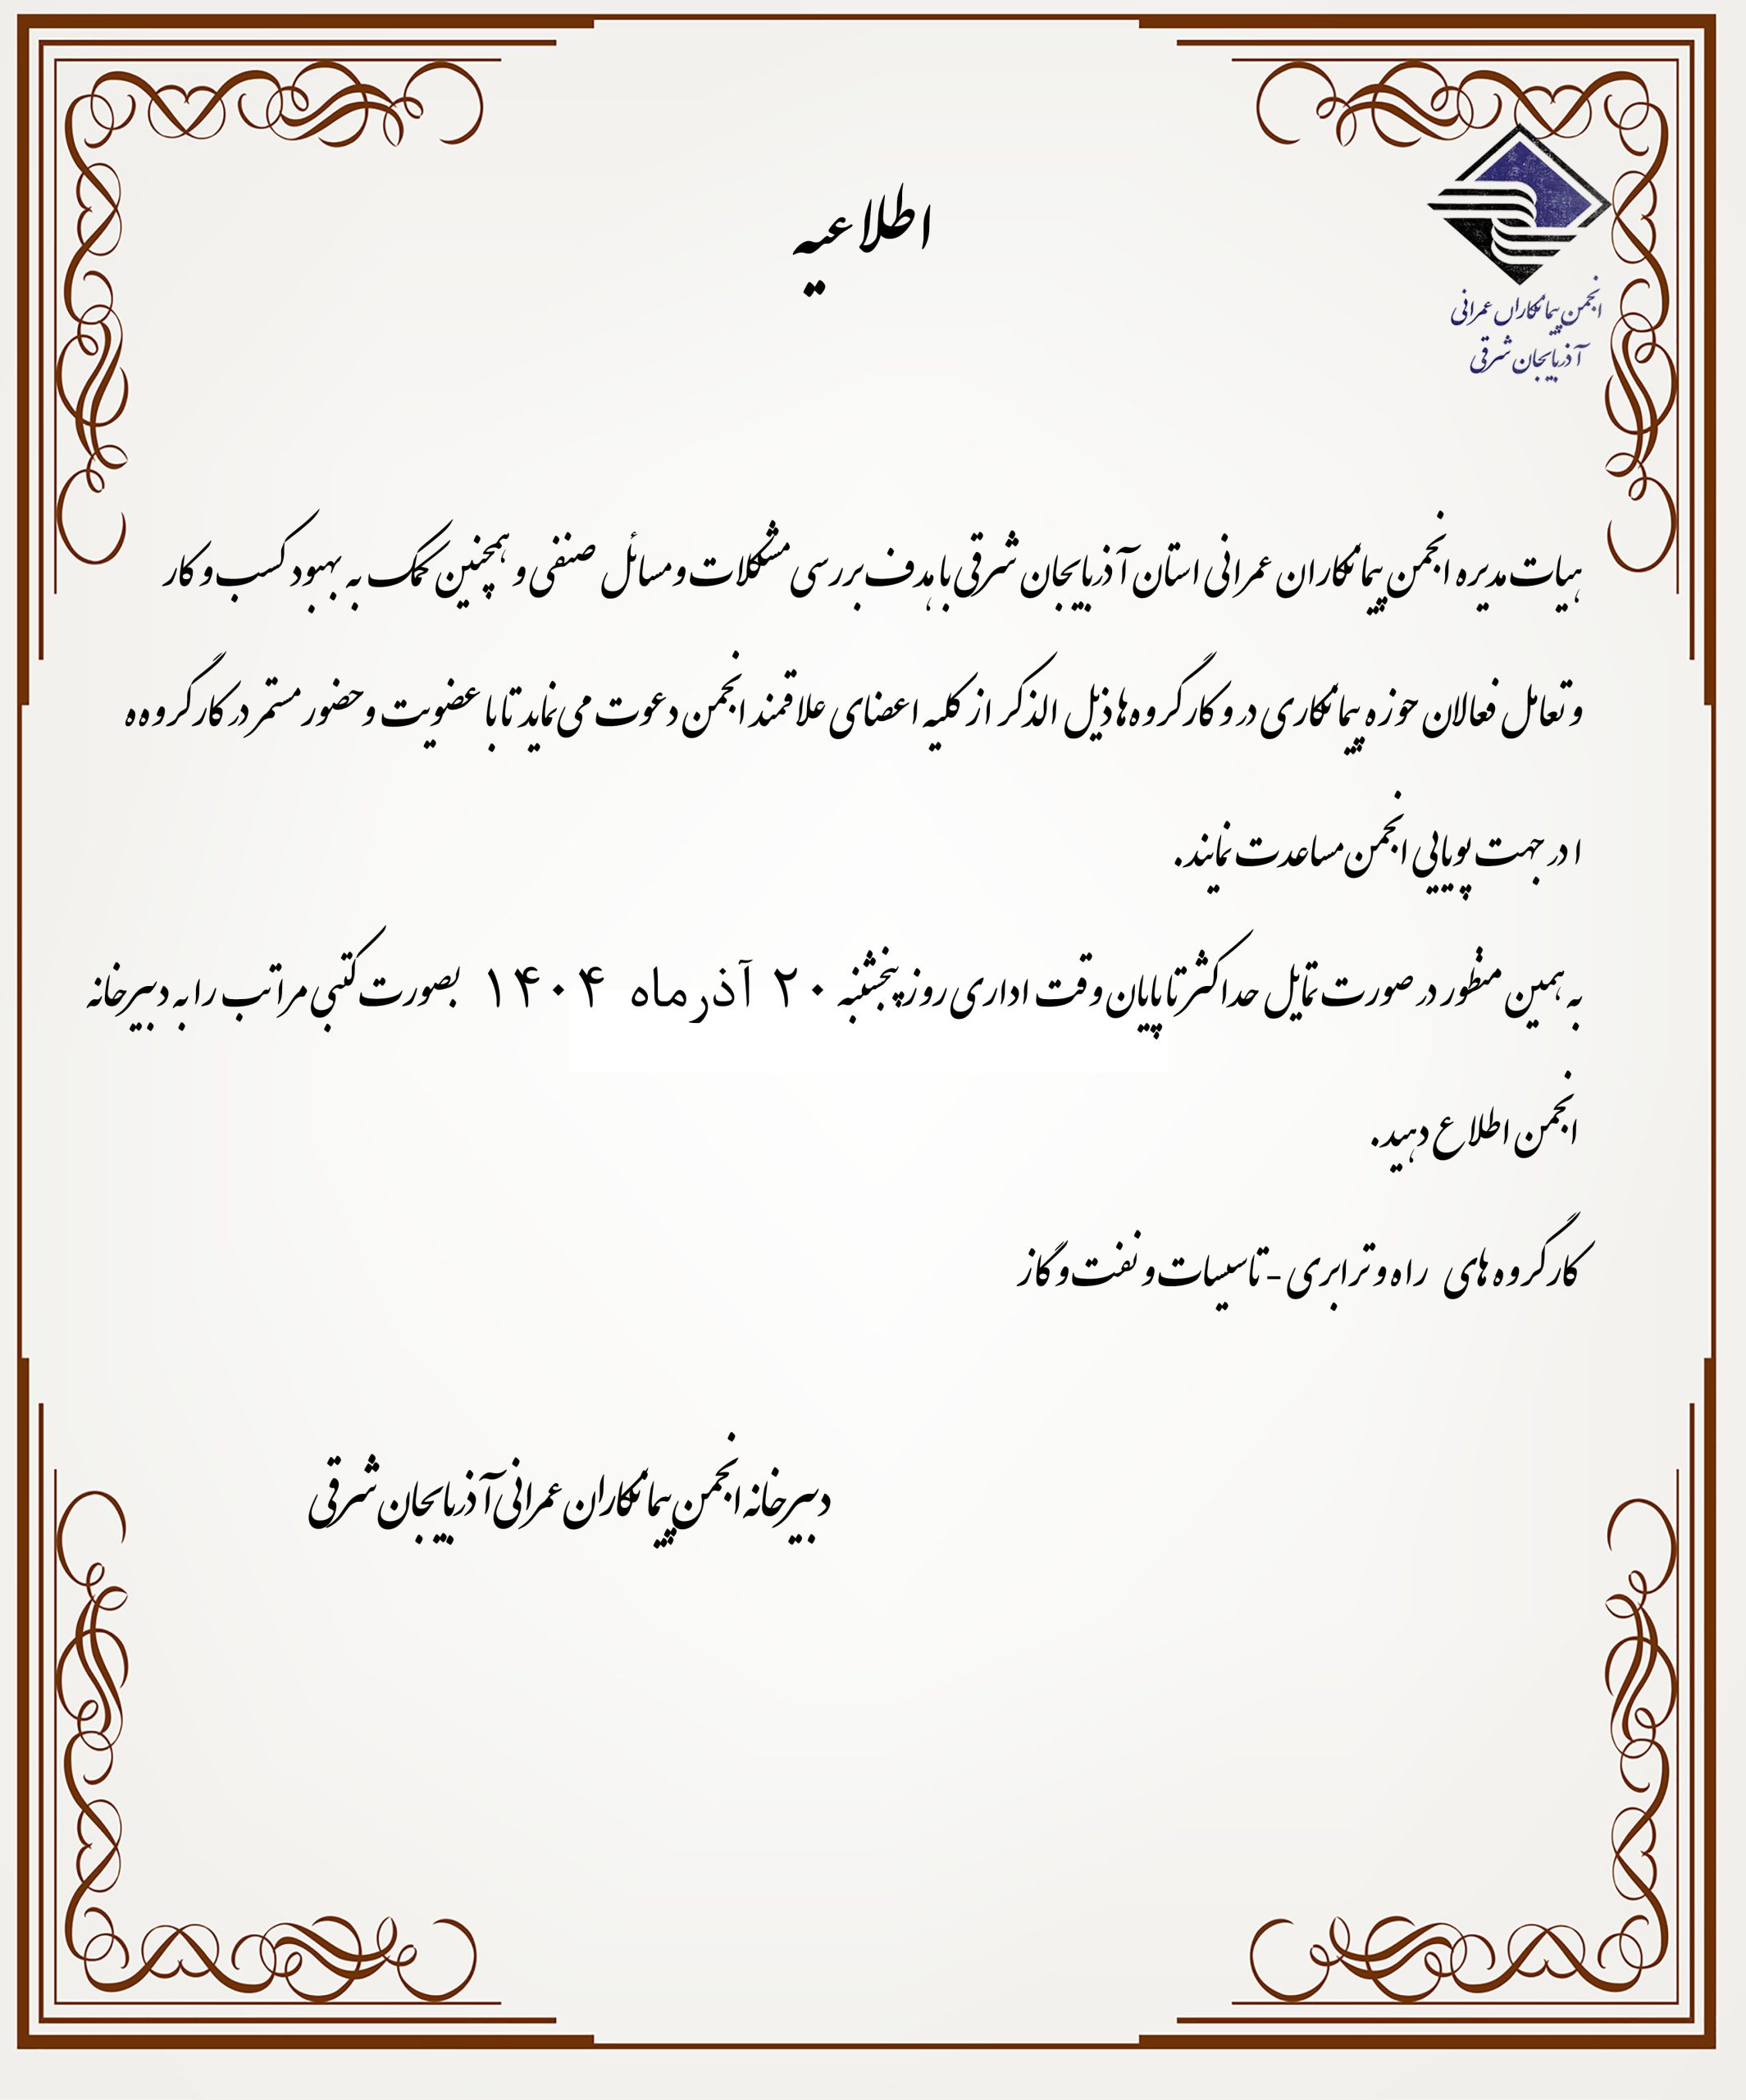 اطلاعیه
انجمن پیمانکاران عمرانی
آذربایجان شرقی
هیات مدیره انجمن پیمانکاران عمرانی استان آذربایجان شرقی با هدف بررسی مشکلات و مسائل صنفی و همچنین کمک به بهبود کسب و کار
و تعامل فعالان حوزه پیمانکاری در و کارگروه ها ذیل الذکر از کلیه اعضای علاقمند انجمن دعوت می نماید تا با عضویت و حضور مستمر در کارگروه ه
ا در جهت پویایی انجمن مساعدت نمایند.
به همین منظور در صورت تمایل حداکثر تا پایان وقت اداری روز پنجشنبه ۲۰ آذر ماه ۱۴۰۴ بصورت کتبی مراتب را به دبیرخانه
انجمن اطلاع دهید.
کارگروه های راه و ترابری - تاسیسات و نفت و گاز
دبیرخانه انجمن پیمانکاران عمرانی آذربایجان شرقی